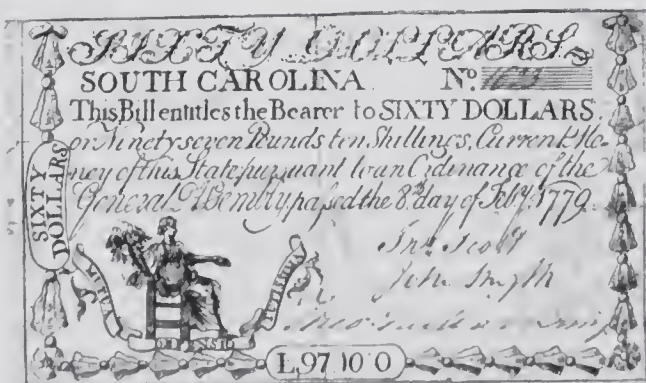 SIXTY DOLLARS
SOUTH CAROLINA No.
This Bill entitles the Bearer to SIXTY DOLLARS
or Ninety seven Pounds ten Shillings, Current Mo-
ney of this State pursuant to an Ordinance of the
General Assembly passed the 8th. day of Feby. 1779.
SIXTY
DOLLARS
Jno. Scott
John Smyth
L,97.10 0